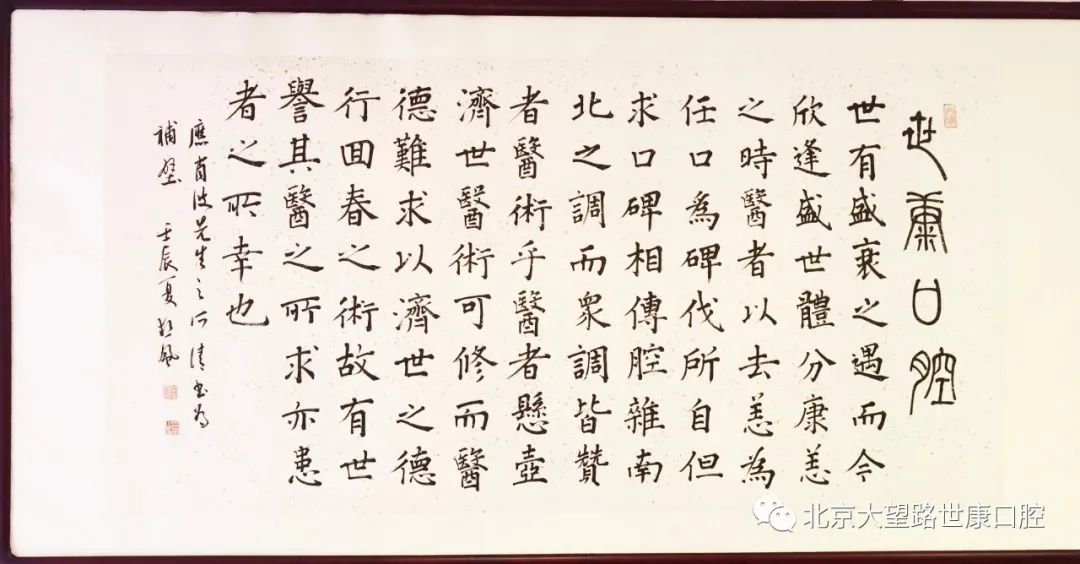 世康口腔
世有盛衰之遇而今
欣逢盛世體分康恙
之時醫者以去恙為
任口為碑伐所自但
求口碑相傳腔雜南
北之調而眾調皆贊
者醫術乎醫者懸壺
濟世醫術可修而醫
德難求以濟世之德
行回春之術故有世
譽其醫之所求亦患
者之所幸也
應肖波先生之
清書為
補壁 壬辰夏
北京大望路世康口腔